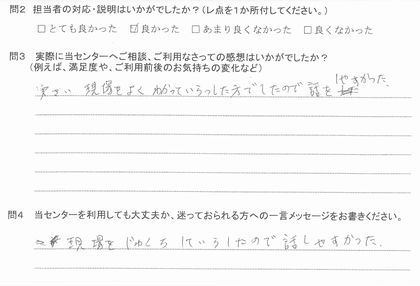 問2 担当者の対応・説明はいかがでしたか？（レ点を1か所付してください。）
□とても良かった ☑良かった □あまり良くなかった □良くなかった
問3 実際に当センターへご相談、ご利用なさっての感想はいかがでしたか？
（例えば、満足度や、ご利用前後のお気持ちの変化など）
現場をよくわかっていらっした方でしたので話をしやすかった.
問4 当センターを利用しても大丈夫か、迷っておられる方への一言メッセージをお書きください。
現場をじゅくちしていらしたので話しやすかった.